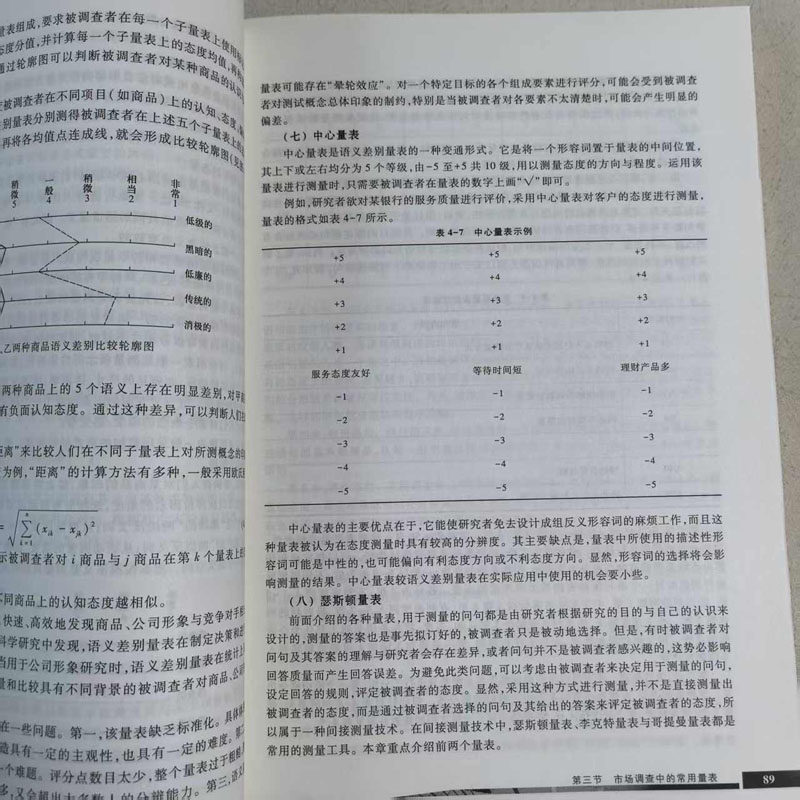 量表组成,要求被调查者在每一个子量表上使用
态度分值,并计算每一个子量表上的态度均值,再
通过轮廓图可以判断被调查者对某种商品的认识
被调查者在不同项目(如商品)上的认知、态度
别量表分别测得被调查者在上述五个子量表上的
再将各均值点连成线,就会形成比较轮廓图(见
稍微 一般 稍微 相当 非常
5 4 3 2 1
低级的
黑暗的
低廉的
传统的
消极的
乙两种商品语义差别比较轮廓图
两种商品上的 5 个语义上存在明显差别,对甲
有负面认知态度。通过这种差异,可以判断人们
距离”来比较人们在不同子量表上对所测概念的
为例,“距离”的计算方法有多种,一般采用欧氏
= √∑(x_ik − x_jk)²
i=1
示被调查者对 i 商品与 j 商品在第 k 个量表上
不同商品上的认知态度越相似。
快速、高效地发现商品、公司形象与竞争对手
科学研究中发现,语义差别量表在制定决策和
当用于公司形象研究时,语义差别量表在统计上
量和比较具有不同背景的被调查者对商品、公司
在一些问题。第一,该量表缺乏标准化。具体
造具有一定的主观性,也具有一定的难度。第二
一个难题。评分点数目太少,整个量表过于粗糙
多,又会超出大多数人的分辨能力。第三,语义
量表可能存在“晕轮效应”。对一个特定目标的各个组成要素进行评分,可能会受到被调查
者对测试概念总体印象的制约,特别是当被调查者对各要素不太清楚时,可能会产生明显的
偏差。
(七)中心量表
中心量表是语义差别量表的一种变通形式。它是将一个形容词置于量表的中间位置,
其上下或左右均分为 5 个等级,由-5 至+5 共 10 级,用以测量态度的方向与程度。运用该
量表进行测量时,只需要被调查者在量表的数字上画“√”即可。
例如,研究者欲对某银行的服务质量进行评价,采用中心量表对客户的态度进行测量,
量表的格式如表 4-7 所示。
表 4-7 中心量表示例
+5 +5 +5
+4 +4 +4
+3 +3 +3
+2 +2 +2
+1 +1 +1
服务态度友好 等待时间短 理财产品多
-1 -1 -1
-2 -2 -2
-3 -3 -3
-4 -4 -4
-5 -5 -5
中心量表的主要优点在于,它能使研究者免去设计成组反义形容词的麻烦工作,而且这
种量表被认为在态度测量时具有较高的分辨度。其主要缺点是,量表中所使用的描述性形
容词可能是中性的,也可能偏向有利态度方向或不利态度方向。显然,形容词的选择将会影
响测量的结果。中心量表较语义差别量表在实际应用中使用的机会要小些。
(八)瑟斯顿量表
前面介绍的各种量表,用于测量的问句都是由研究者根据研究的目的与自己的认识来
设计的,测量的答案也是事先拟订好的,被调查者只是被动地选择。但是,有时被调查者对
问句及其答案的理解与研究者会存在差异,或者问句并不是被调查者感兴趣的,这势必影响
回答质量而产生回答误差。为避免此类问题,可以考虑由被调查者来决定用于测量的问句,
设定回答的规则,评定被调查者的态度。显然,采用这种方式进行测量,并不是直接测量出
被调查者的态度,而是通过被调查者选择的问句及其给出的答案来评定被调查者的态度,所
以属于一种间接测量技术。在间接测量技术中,瑟斯顿量表、李克特量表与哥提曼量表都是
常用的测量工具。本章重点介绍前两个量表。
第三节 市场调查中的常用量表 89